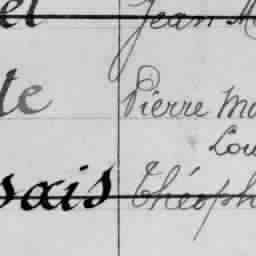 el Jean M
te Pierre Ma
Lou
sais Théoph